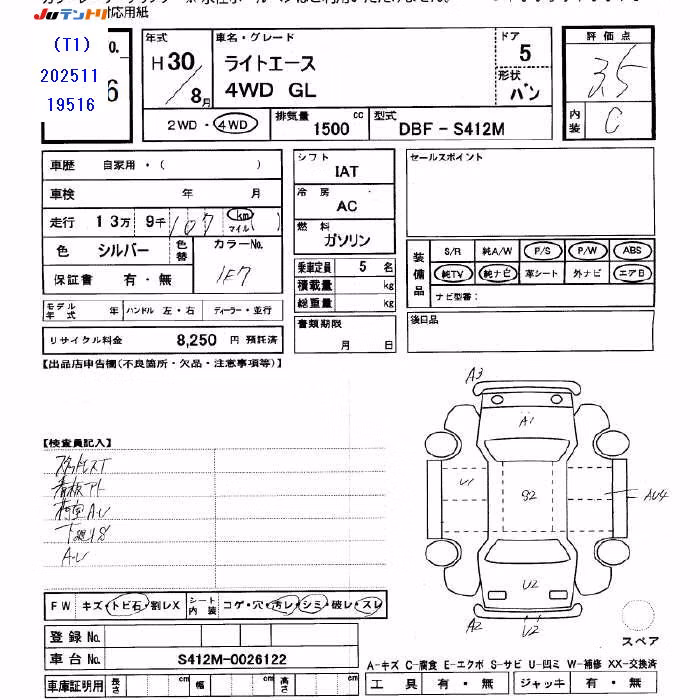 Juテントリ
対応用紙
(T1)
202511
19516
No.
6
年式
H30/8月
車名・グレード
ライトエース
4WD GL
ドア
5
形状
バン
評価点
3.5
内装
C
2WD・4WD
排気量
1500 cc
型式
DBF-S412M
車歴 自家用・( )
車検 年 月
走行 13万 9千 107 km マイル( )
色 シルバー 色替 カラーNo.
1F7
保証書 有・無
モデル年式 年 ハンドル 左・右 ディーラー・並行
リサイクル料金 8,250 円 預託済
シフト
IAT
冷房
AC
燃料
ガソリン
乗車定員 5 名
積載量 kg
総重量 kg
書類期限
月 日
セールスポイント
装備品
S/R 純A/W P/S P/W ABS
純TV 純ナビ 革シート 外ナビ エアB
ナビ型番:
後日品
【出品店申告欄(不良箇所・欠品・注意事項等)】
【検査員記入】
スタッドレスT
看板アト
荷室A・U
下廻りS
A・U
A3
A1
U1
S2
AU4
U2
A2
U2
スペア
FW キズ・トビ石・割レX シート内装 コゲ・穴・汚レ・シミ・破レ・スレ
登録No.
車台No. S412M-0026122
車庫証明用 長さ cm 幅 cm 高さ cm
A-キズ C-腐食 E-エクボ S-サビ U-凹ミ W-補修 XX-交換済
工具 有・無 ジャッキ 有・無